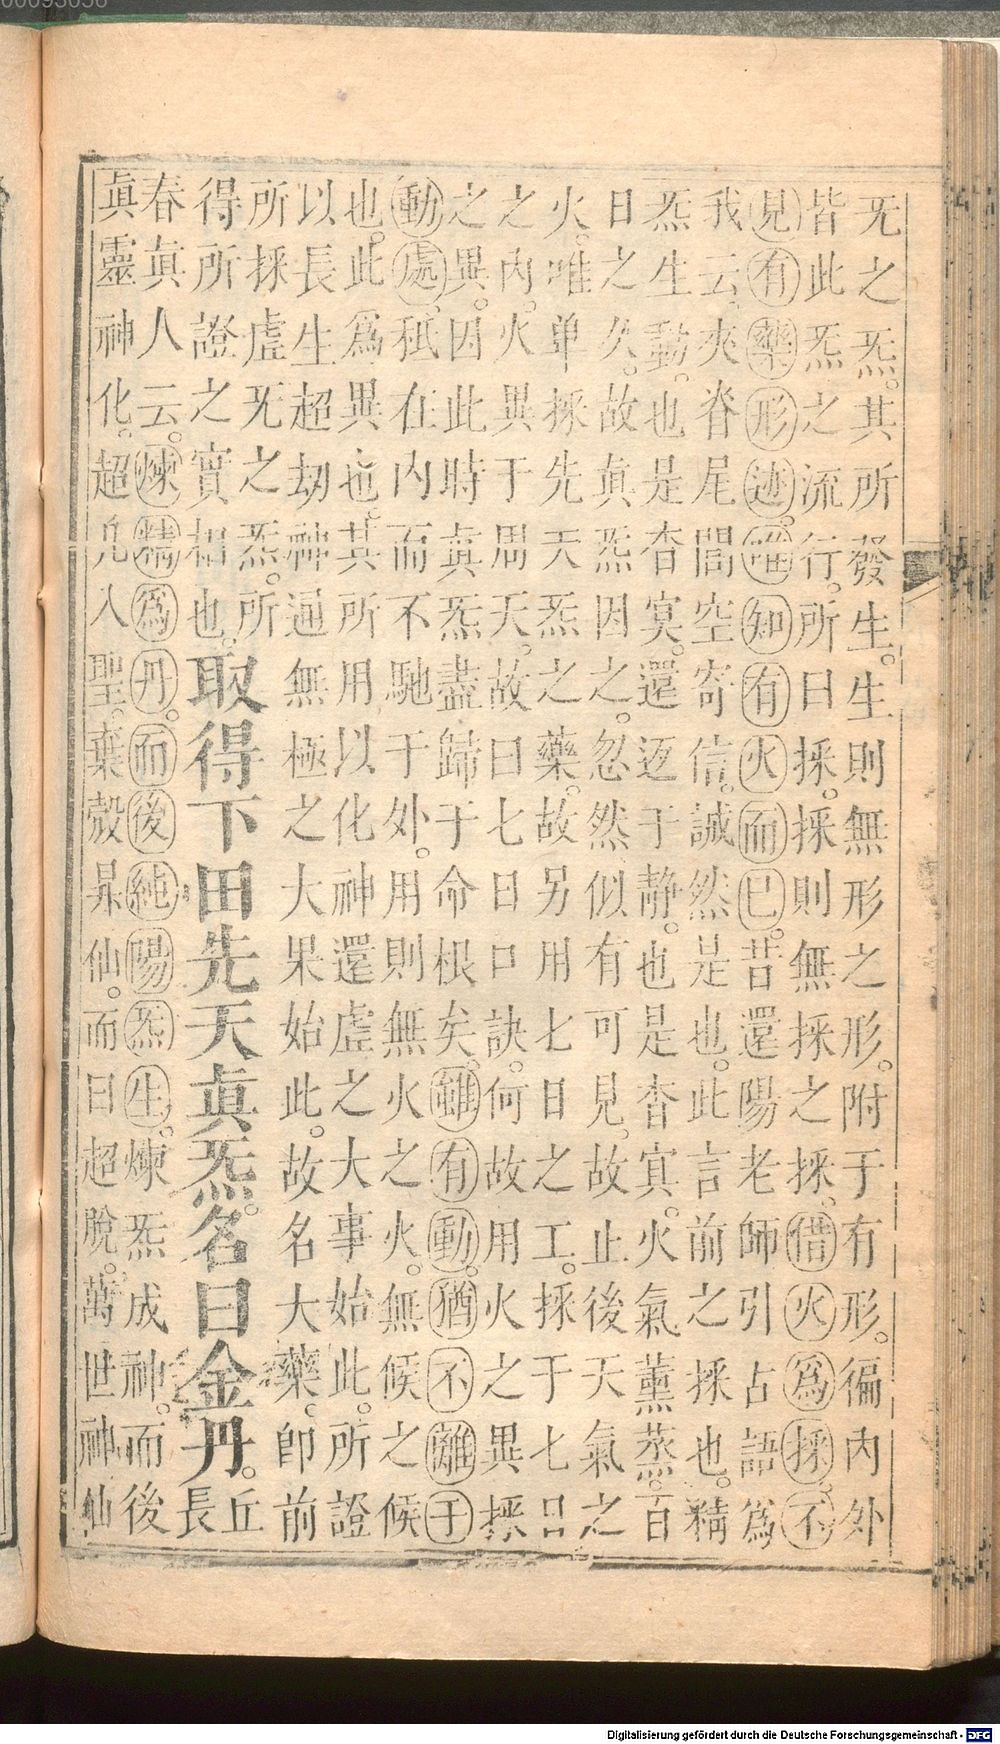 旡之炁。其所發生。生則無形之形。附于有形。徧內外
皆此炁之流行。所曰採。採則無採之採。借火爲採。不
見有藥形迹。唯知有火而已。昔還陽老師引古語爲
我云。夾脊尾閭空寄信。誠然是也。此言前之採也。精
炁生動。也是杳冥。還返于静。也是杳冥。火氣薰蒸。百
日之久。故眞炁因之。忽然似有可見。故止後天氣之
火。唯单採先天炁之藥。故另用七日之工。採于七日
之內。火異于周天。故曰七日口訣。何故用火之異採
之異。因此時眞炁盡歸于命根矣。雖有動。猶不離于
動處。秪在內而不馳于外。用則無火之火。無候之候
也。此爲異也。其所用以化神還虛之大事始此。所證
以長生超劫神通無極之大果始此。故名大藥。卽前
所採虛旡之炁。所
得所證之實相也。
取得下田先天眞炁名曰金丹。
丘
長
春眞人云。煉精爲丹。而後純陽炁生。煉炁成神。而後
眞靈神化。超凡入聖。棄殼昇仙。而曰超脫。萬世神仙
Digitalisierung gefördert durch die Deutsche Forschungsgemeinschaft - DFG